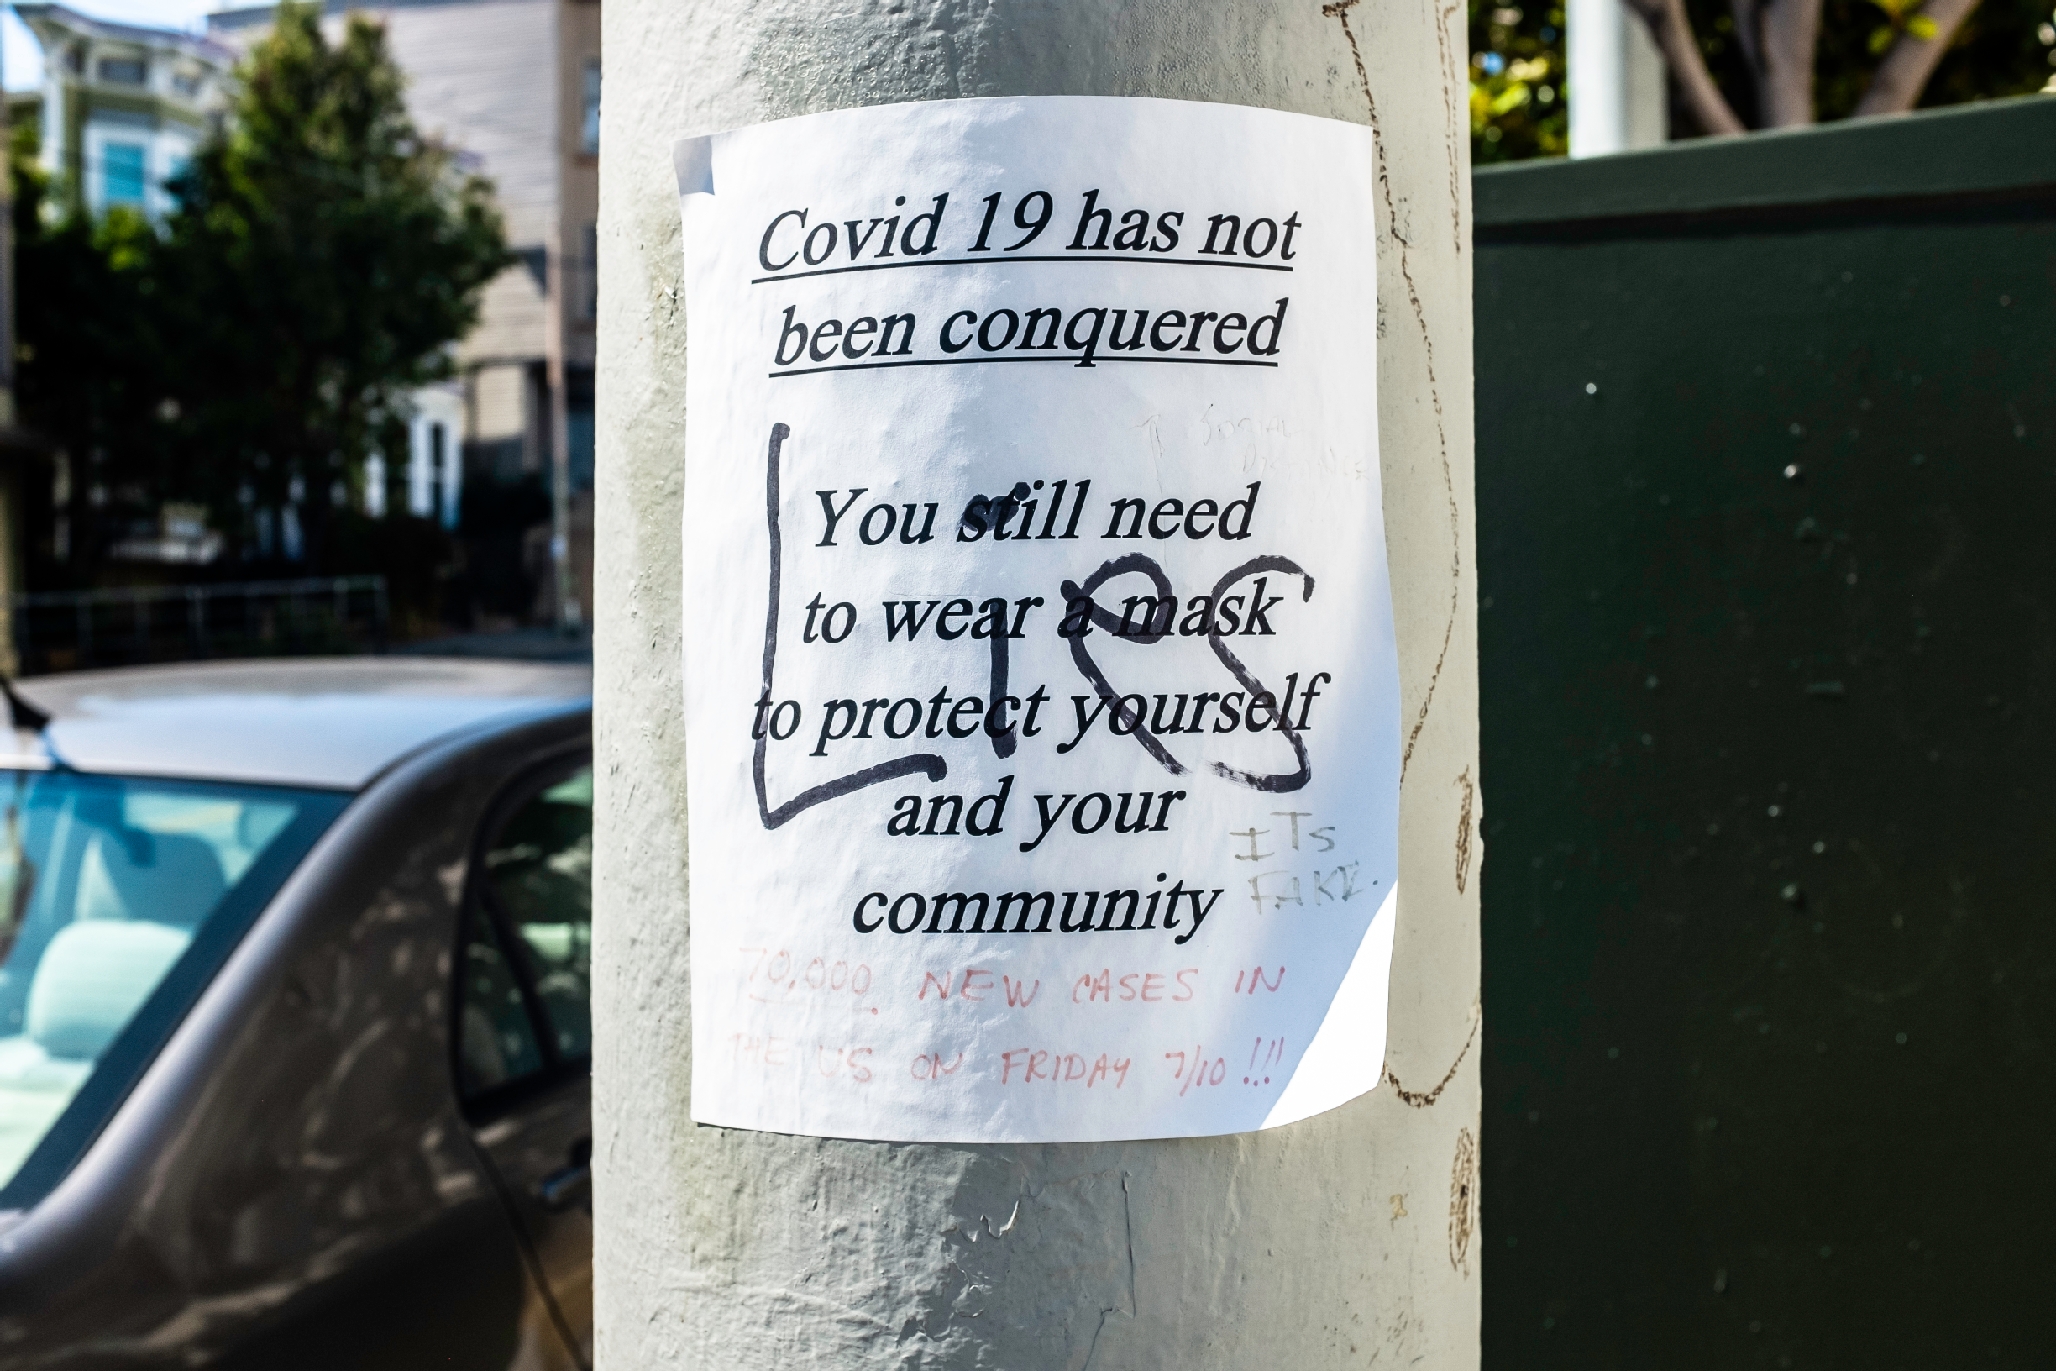 Covid 19 has not
been conquered
You still need
to wear a mask
to protect yourself
and your
community
Lies
ITs
FAKE.
70,000 NEW CASES IN
THE US ON FRIDAY 7/10 !!!